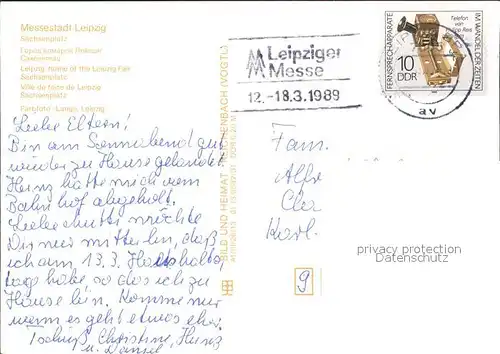 Messestadt Leipzig
Sachsenplatz
Leipzig, home of the Leipzig Fair
Sachsenplatz
Ville de foire de Leipzig
Sachsenplatz
Farbfoto: Lange, Leipzig
Liebe Eltern!
Bin am Sonnabend gut
wieder zu Hause gelandet
Heinz hatte mich vom
Bahnhof abgeholt.
Liebe Mutti möchte
Dir nur mitteilen, daß
ich am 13.3. Haushalts-
tag habe, so das ich zu
Hause bin. Komme nur
wenn es geht etwas eher.
Tschüß Christine, Heinz
u. Daniel
BILD UND HEIMAT REICHENBACH (VOGTL)
Leipziger
Messe
12.-18.3.1989
FERNSPRECHAPPARATE
IM WANDEL DER ZEITEN
Telefon
von
Philipp Reis
10
DDR
av
Fam.
Karl
9
privacy protection
Datenschutz